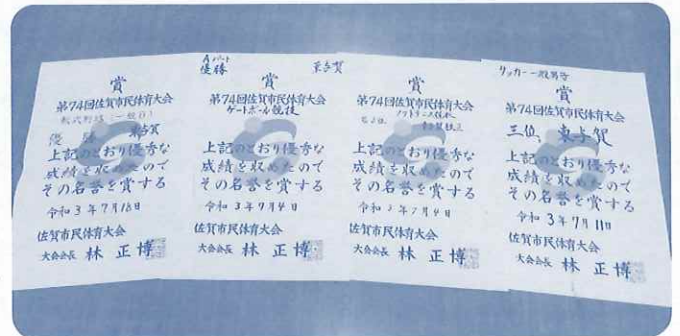 賞
第74回佐賀市民体育大会
軟式野球(一般B)
優勝 東与賀
上記のとおり優秀な
成績を収めたので
その名誉を賞する
令和3年7月18日
佐賀市民体育大会
大会会長 林 正博
Aパート
優勝 東与賀
賞
第74回佐賀市民体育大会
ゲートボール競技
上記のとおり優秀な
成績を収めたので
その名誉を賞する
令和3年9月4日
佐賀市民体育大会
大会会長 林 正博
賞
第74回佐賀市民体育大会
ソフトテニス競技
上記のとおり優秀な
成績を収めたので
その名誉を賞する
令和3年7月4日
佐賀市民体育大会
大会会長 林 正博
サッカー 一般男子
賞
第74回佐賀市民体育大会
三位 東与賀
上記のとおり優秀な
成績を収めたので
その名誉を賞する
令和3年7月11日
佐賀市民体育大会
大会会長 林 正博